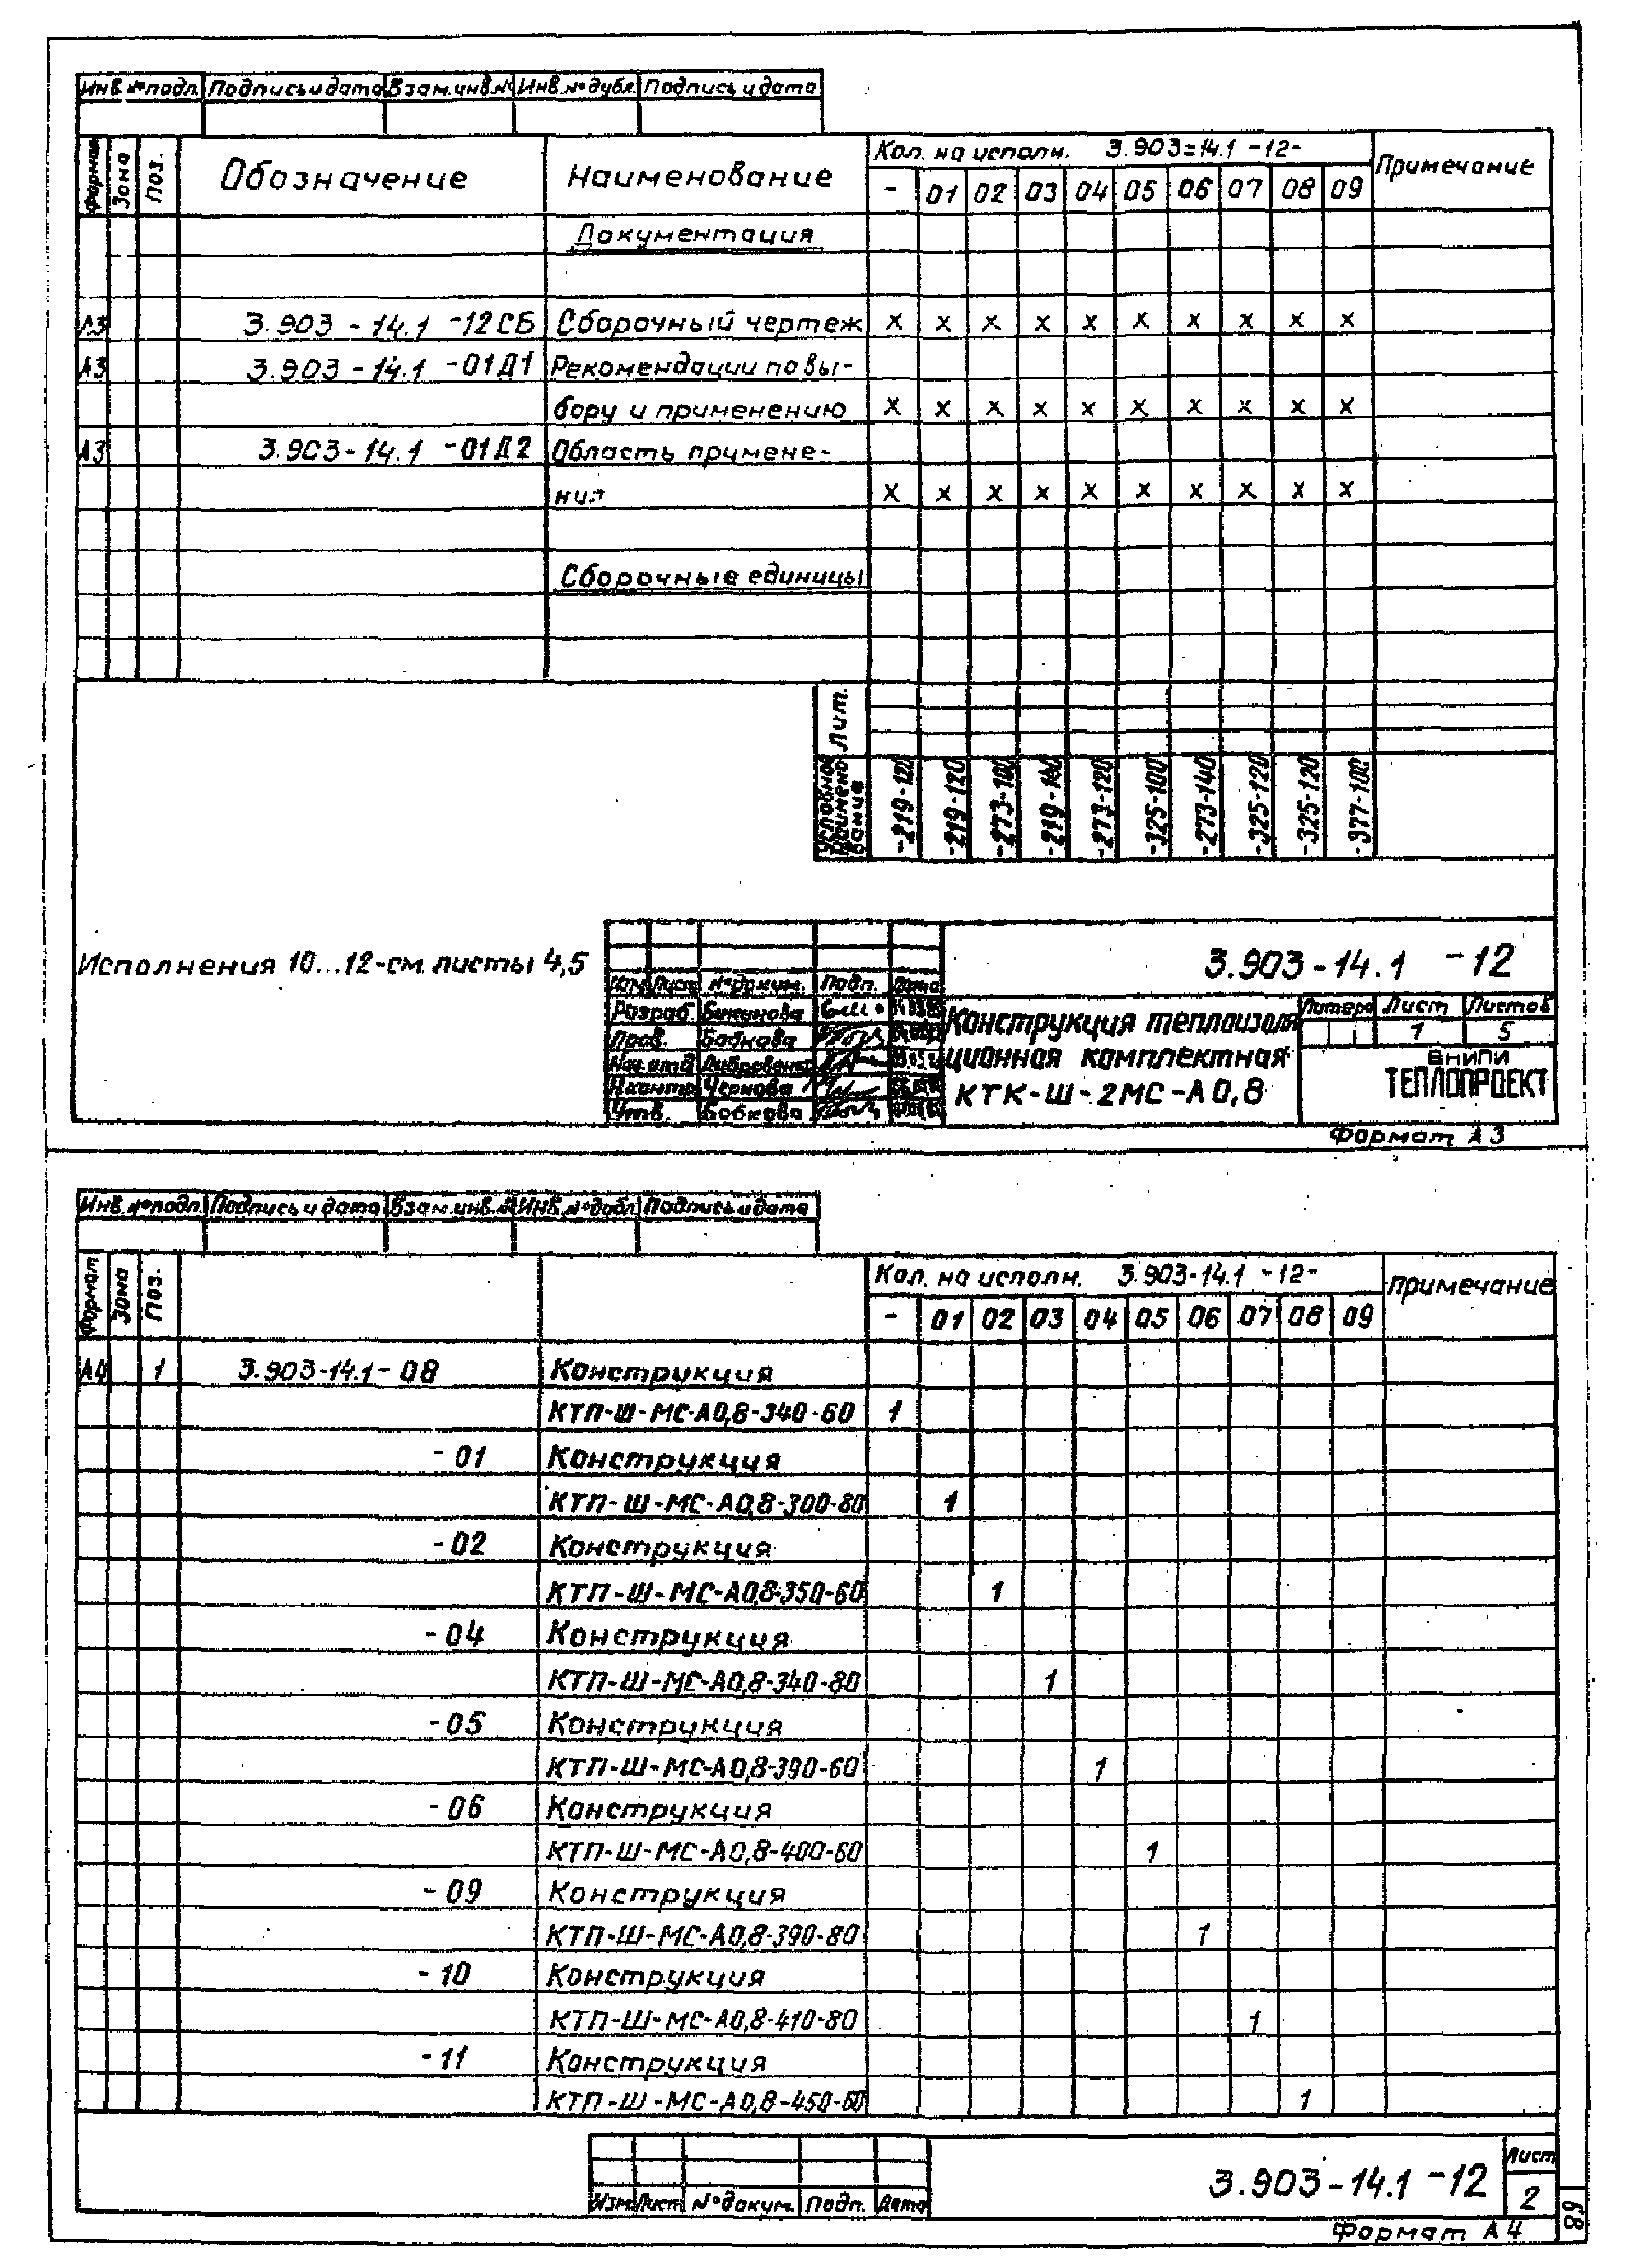 Инв.№подл. Подпись и дата Взам.инв.№ Инв.№дубл. Подпись и дата
Формат Зона Поз. Обозначение Наименование Кол. на исполн. 3.903-14.1 -12- Примечание
- 01 02 03 04 05 06 07 08 09
Документация
А3 3.903-14.1 -12СБ Сборочный чертеж х х х х х х х х х х
А3 3.903-14.1 -01Д1 Рекомендации по вы-
бору и применению х х х х х х х х х х
А3 3.903-14.1 -01Д2 Область примене-
ния х х х х х х х х х х
Сборочные единицы
Лит.
Условное наименование -219-120 -219-120 -273-100 -219-140 -273-120 -325-100 -273-140 -325-120 -325-120 -377-100
Исполнения 10...12-см. листы 4,5
3.903-14.1 -12
Изм Лист №докум. Подп. Дата
Разраб. Бикунова
Пров. Бобкова
Нач.отд
Н.контр Чернова
Утв. Бобкова
Конструкция теплоизоля
ционная комплектная
КТК-Ш-2МС-А0,8
Литера Лист Листов
1 5
ВНИПИ
ТЕПЛОПРОЕКТ
Формат А3
Инв.№подл. Подпись и дата Взам.инв.№ Инв.№дубл. Подпись и дата
Формат Зона Поз. Кол. на исполн. 3.903-14.1 -12- Примечание
- 01 02 03 04 05 06 07 08 09
А4 1 3.903-14.1-08 Конструкция
КТП-Ш-МС-А0,8-340-60 1
-01 Конструкция
КТП-Ш-МС-А0,8-300-80 1
-02 Конструкция
КТП-Ш-МС-А0,8-350-60 1
-04 Конструкция
КТП-Ш-МС-А0,8-340-80 1
-05 Конструкция
КТП-Ш-МС-А0,8-390-60 1
-06 Конструкция
КТП-Ш-МС-А0,8-400-60 1
-09 Конструкция
КТП-Ш-МС-А0,8-390-80 1
-10 Конструкция
КТП-Ш-МС-А0,8-410-80 1
-11 Конструкция
КТП-Ш-МС-А0,8-450-60 1
3.903-14.1 -12
Лист
2
Изм Лист №докум. Подп. Дата
Формат А4
68